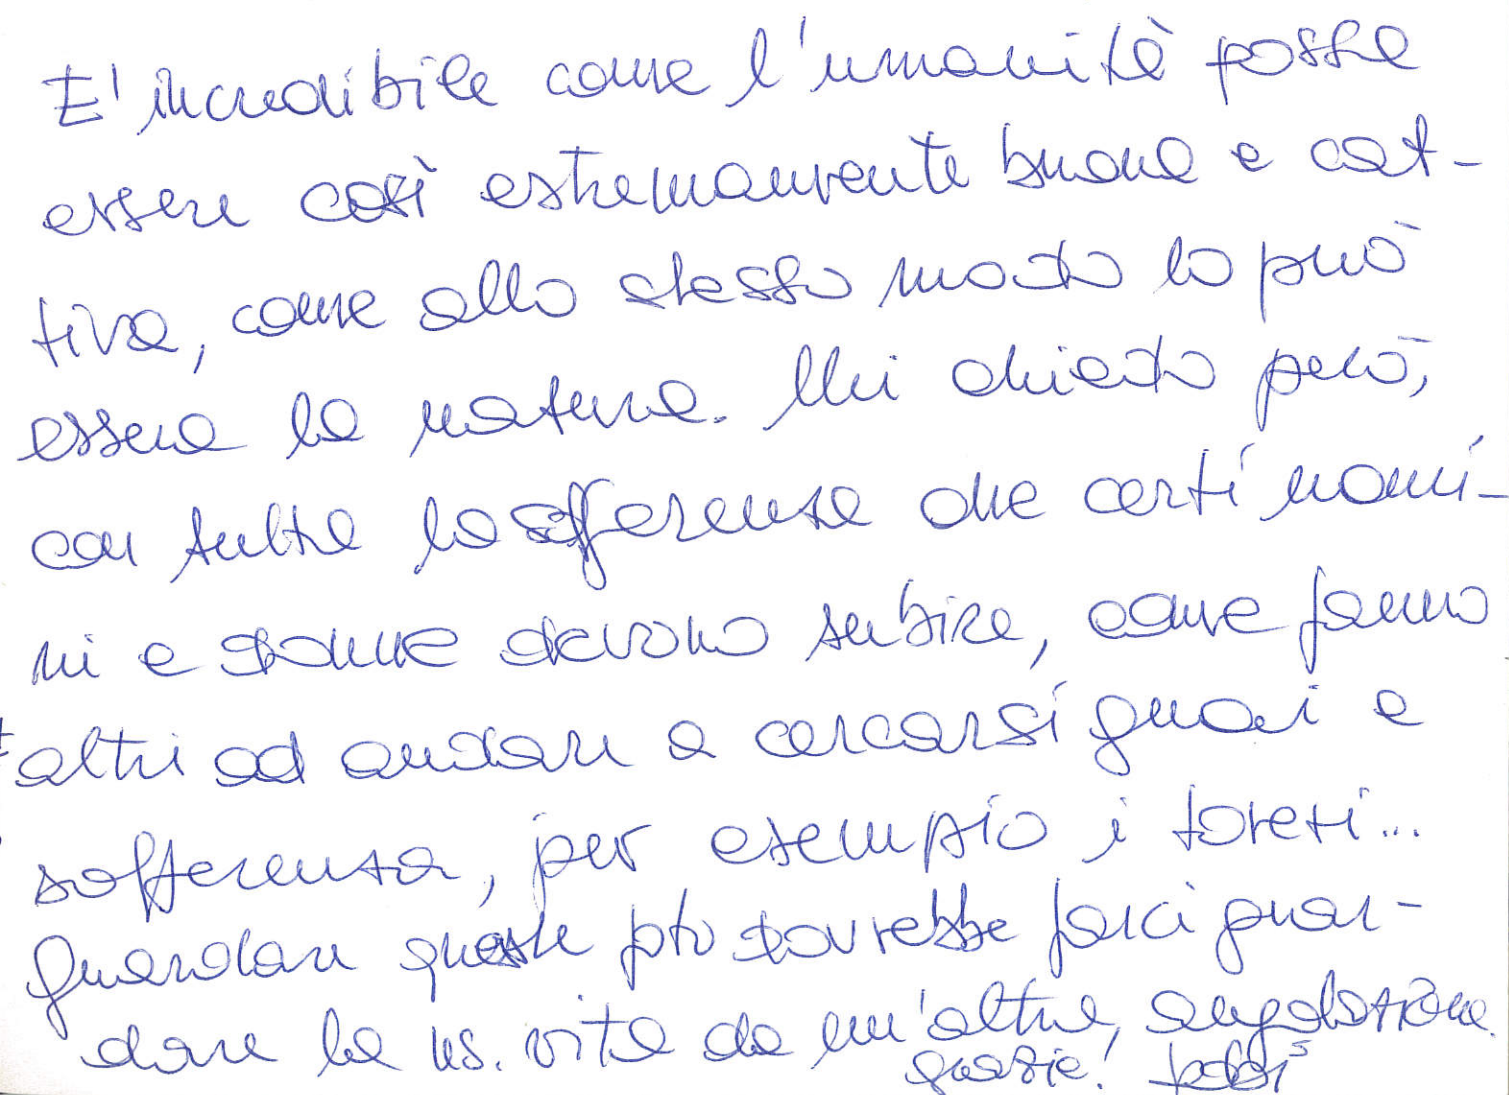 E' incredibile come l'umanità possa
essere così estremamente buona e cat-
tiva, come allo stesso modo lo può
essere la natura. Mi chiedo però,
con tutta la sofferenza che certi uomi-
ni e donne devono subire, come fanno
altri ad andare a cercarsi guai e
sofferenza, per esempio i toreri...
Guardare queste foto dovrebbe farci guar-
dare la ns. vita da un'altra angolazione.
grazie!